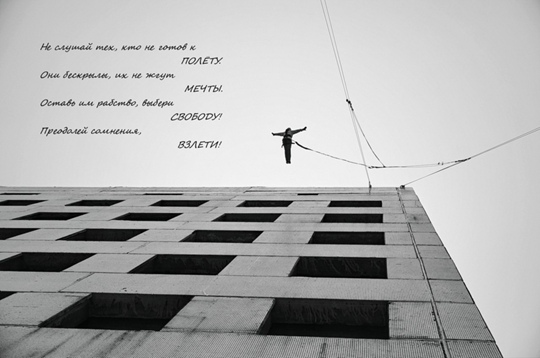 Не слушай тех, кто не готов к
ПОЛЁТУ.
Они бескрылы, их не жгут
МЕЧТЫ.
Оставь им рабство, выбери
СВОБОДУ!
Преодолей сомнения,
ВЗЛЕТИ!